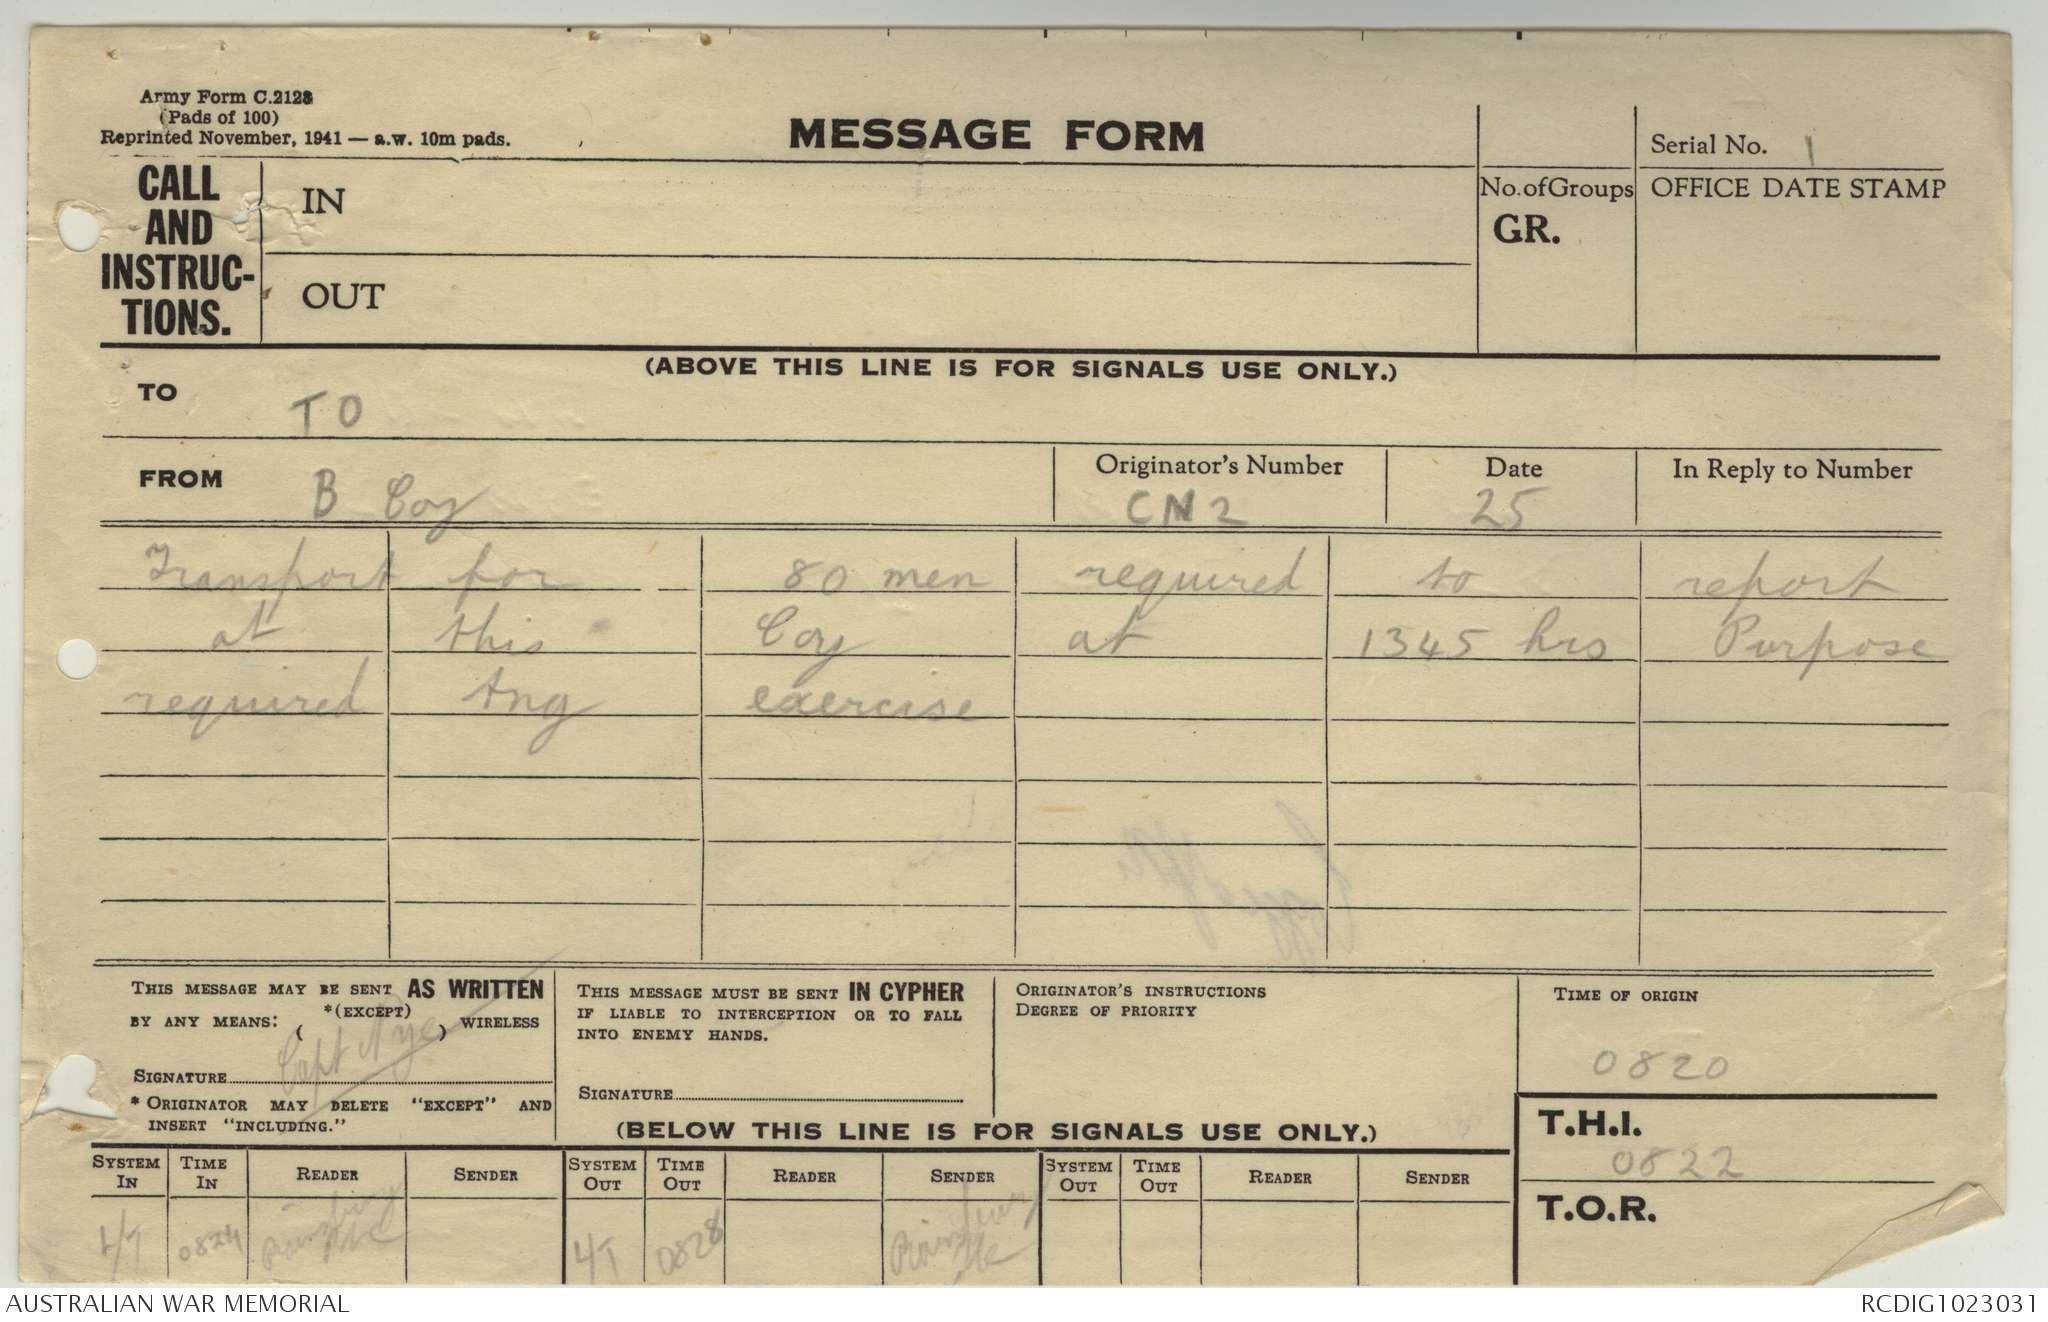 Army Form C.2128
(Pads of 100)
Reprinted November, 1941 — a.w. 10m pads.
MESSAGE FORM
Serial No. 1
CALL AND INSTRUC-TIONS.
IN
OUT
No. of Groups
GR.
OFFICE DATE STAMP
(ABOVE THIS LINE IS FOR SIGNALS USE ONLY.)
TO TO
FROM B Coy
Originator's Number CN2
Date 25
In Reply to Number
Transport for 80 men required to report
at this Coy at 1345 hrs Purpose
required tng exercise
THIS MESSAGE MAY BE SENT AS WRITTEN
BY ANY MEANS: *(EXCEPT) ( ) WIRELESS
Capt Nye
SIGNATURE
* ORIGINATOR MAY DELETE "EXCEPT" AND
INSERT "INCLUDING."
THIS MESSAGE MUST BE SENT IN CYPHER
IF LIABLE TO INTERCEPTION OR TO FALL
INTO ENEMY HANDS.
SIGNATURE
ORIGINATOR'S INSTRUCTIONS
DEGREE OF PRIORITY
TIME OF ORIGIN
0820
(BELOW THIS LINE IS FOR SIGNALS USE ONLY.)
T.H.I.
0822
T.O.R.
SYSTEM IN TIME IN READER SENDER SYSTEM OUT TIME OUT READER SENDER SYSTEM OUT TIME OUT READER SENDER
L/T 0824 0828
AUSTRALIAN WAR MEMORIAL
RCDIG1023031